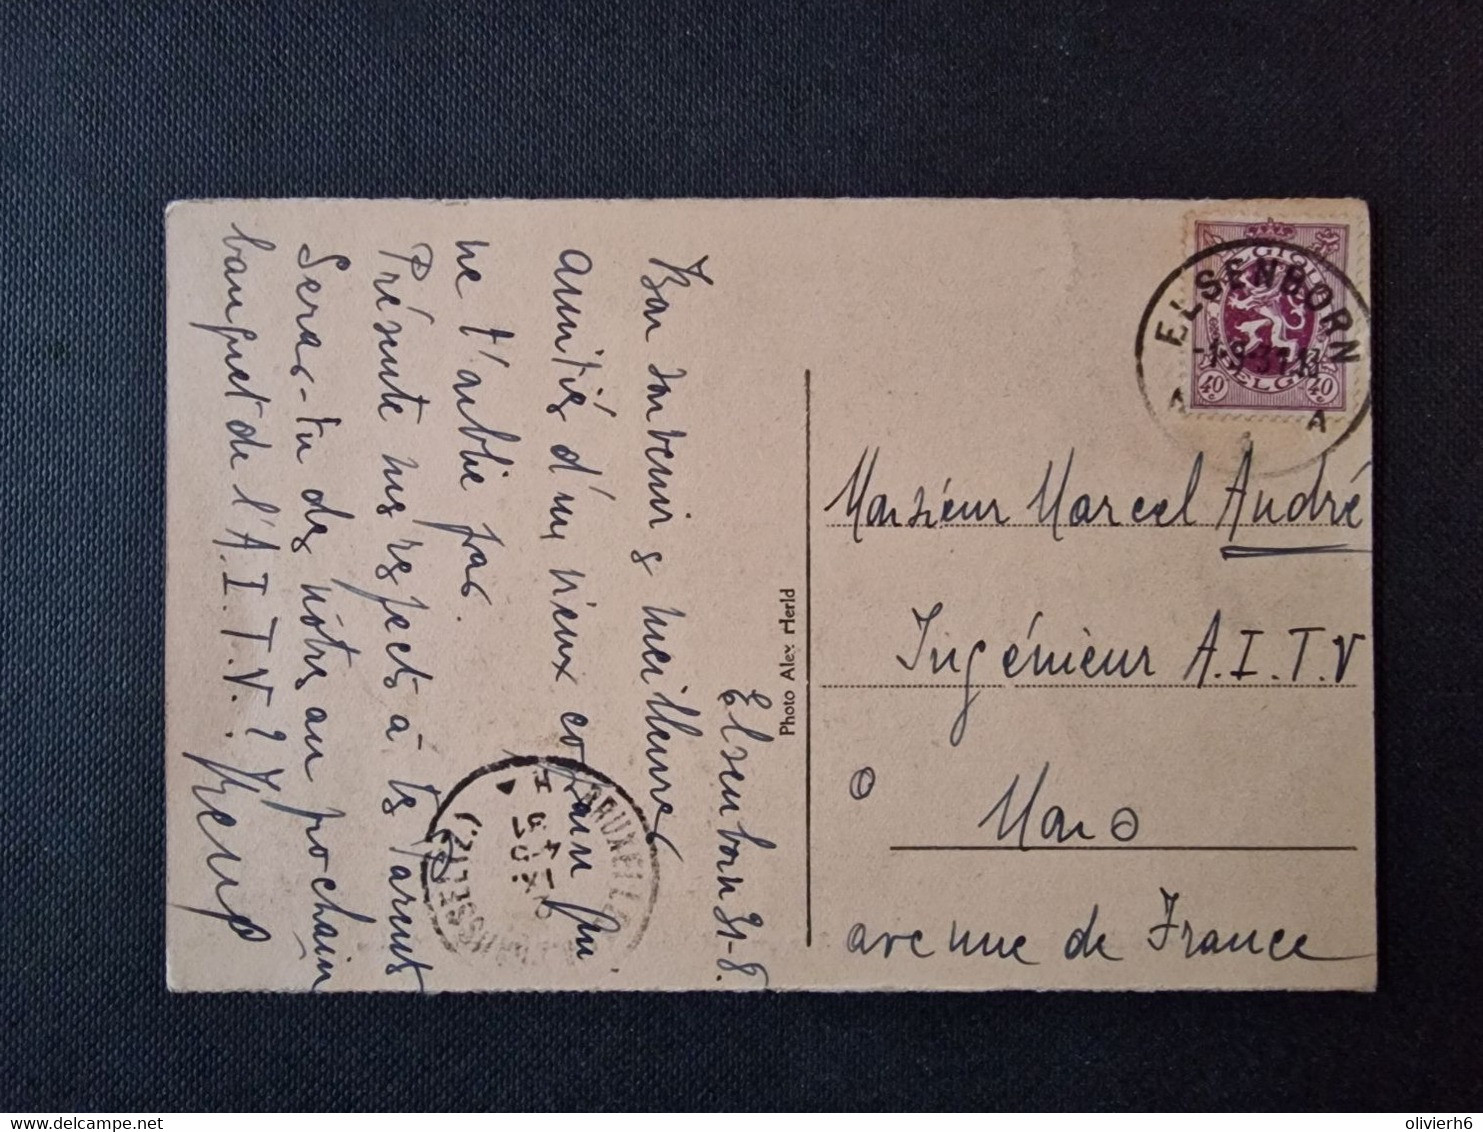 Elsenborn 31-8.
Bon souvenir & meilleures
amitiés d'un vieux copain qui
ne t'oublie pas.
Présente mes respects à tes Parents
Seras-tu des nôtres au prochain
banquet de l'A.I.T.V.?
Photo Alex Herld
BELGIQUE
BELGIË
40 c 40 c
ELSENBORN
-1-9-31.13
A A
BRUXELLES
BRUSSEL
IX
31
Monsieur Marcel André
Ingénieur A.I.T.V
avenue de France
olivierh6